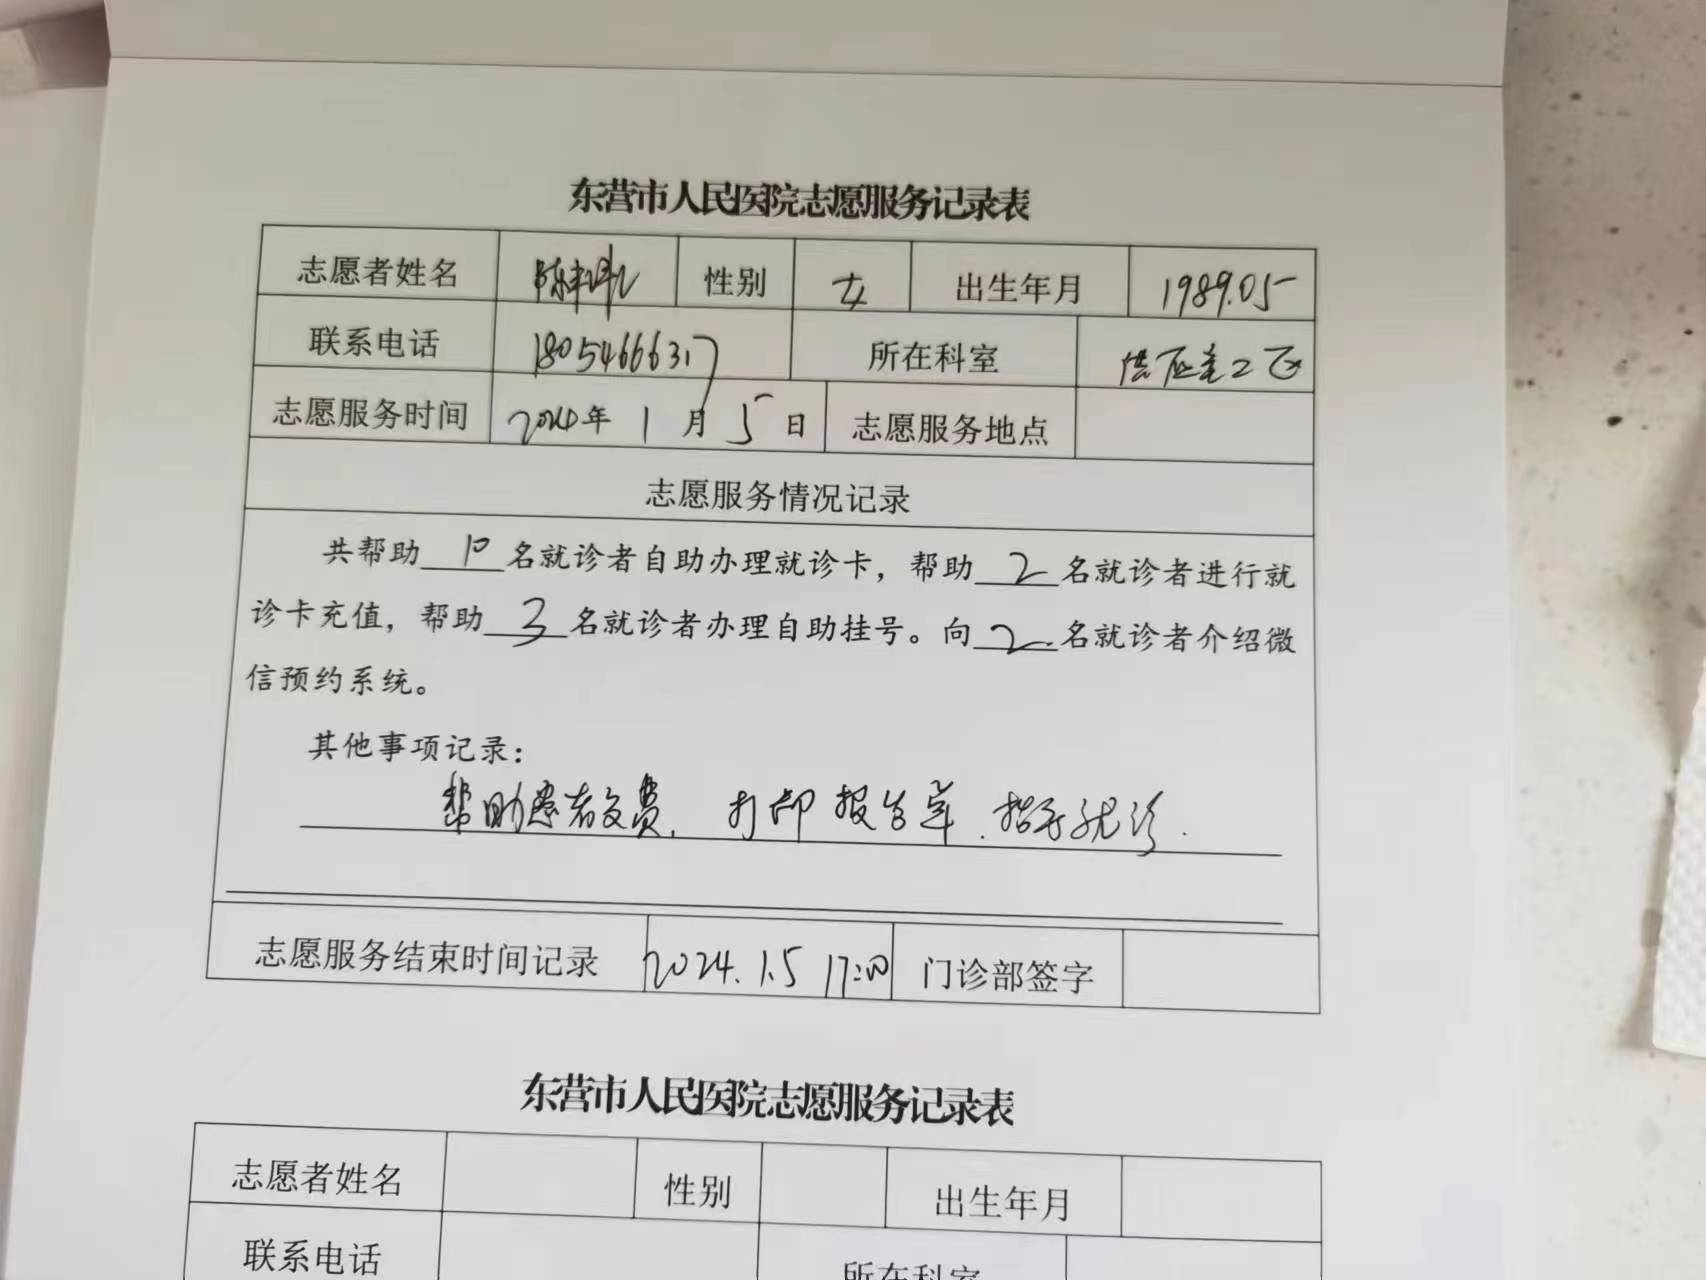 东营市人民医院志愿服务记录表
志愿者姓名 陈 性别 女 出生年月 1989.05
联系电话 18054666317 所在科室 供应室工区
志愿服务时间 2024年 1 月 5 日 志愿服务地点
志愿服务情况记录
共帮助 10 名就诊者自助办理就诊卡，帮助 2 名就诊者进行就
诊卡充值，帮助 3 名就诊者办理自助挂号。向 2 名就诊者介绍微
信预约系统。
其他事项记录：
帮助患者交费，打印报告单，指导就诊.
志愿服务结束时间记录 2024.1.5 17:00 门诊部签字
东营市人民医院志愿服务记录表
志愿者姓名 性别 出生年月
联系电话 所在科室